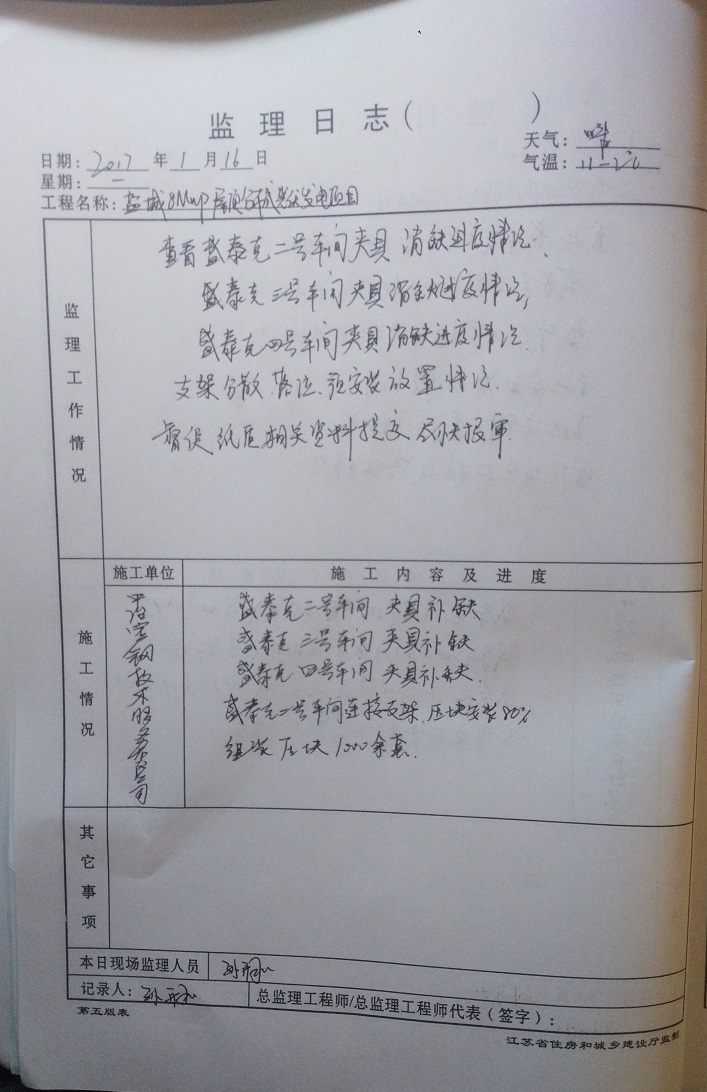 监理日志( )
日期: 2017 年 1 月 16 日
天气: 晴
星期: 一
气温: 11-2℃
工程名称: 盐城8MWp屋顶分布式光伏发电项目
监理工作情况
查看盛泰克二号车间夹具消缺进度情况、
盛泰克三号车间夹具消缺进度情况,
盛泰克四号车间夹具消缺进度情况.
支架分散、落位、预安装放置情况.
督促纸质相关资料提交尽快报审.
施工情况
施工单位
施工内容及进度
钢技术服务公司
盛泰克二号车间 夹具补缺
盛泰克三号车间 夹具补缺
盛泰克四号车间 夹具补缺.
盛泰克二号车间连接支架.压块安装80%
组装压块1000余套.
其它事项
本日现场监理人员
记录人:
总监理工程师/总监理工程师代表(签字):
第五版表
江苏省住房和城乡建设厅监制